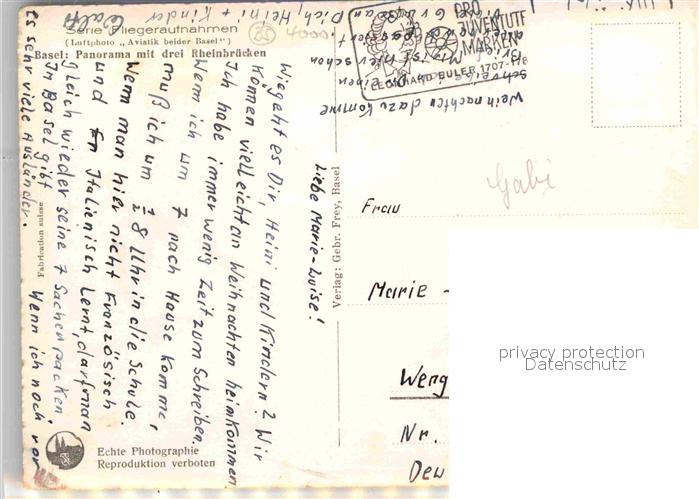 Serie Fliegeraufnahmen
(Luftphoto „Aviatik beider Basel")
Basel: Panorama mit drei Rheinbrücken
Liebe Marie-Luise!
Wie geht es Dir, Heini und Kindern? Wir
können vielleicht an Weihnachten heimkommen.
Ich habe immer wenig Zeit zum Schreiben.
Wenn ich um 7 nach Hause komme,
muß ich um ½ 8 Uhr in die Schule.
Wenn man hier nicht Französisch
und Italienisch lernt, darf man
gleich wieder seine 7 Sachen packen.
In Basel gibt
es sehr viele Ausländer.
Wenn ich noch vor
Weihnachten dazu komme
schreibe ich Dir einen
Dich, Heini + Kinder
PRO
JUVENTUTE
MARKEN
LEONHARD EULER 1707-
Verlag: Gebr. Frey, Basel
Fabrication suisse
Echte Photographie
Reproduktion verboten
Gabi
Frau
Marie -
Weng
Nr.
privacy protection
Datenschutz